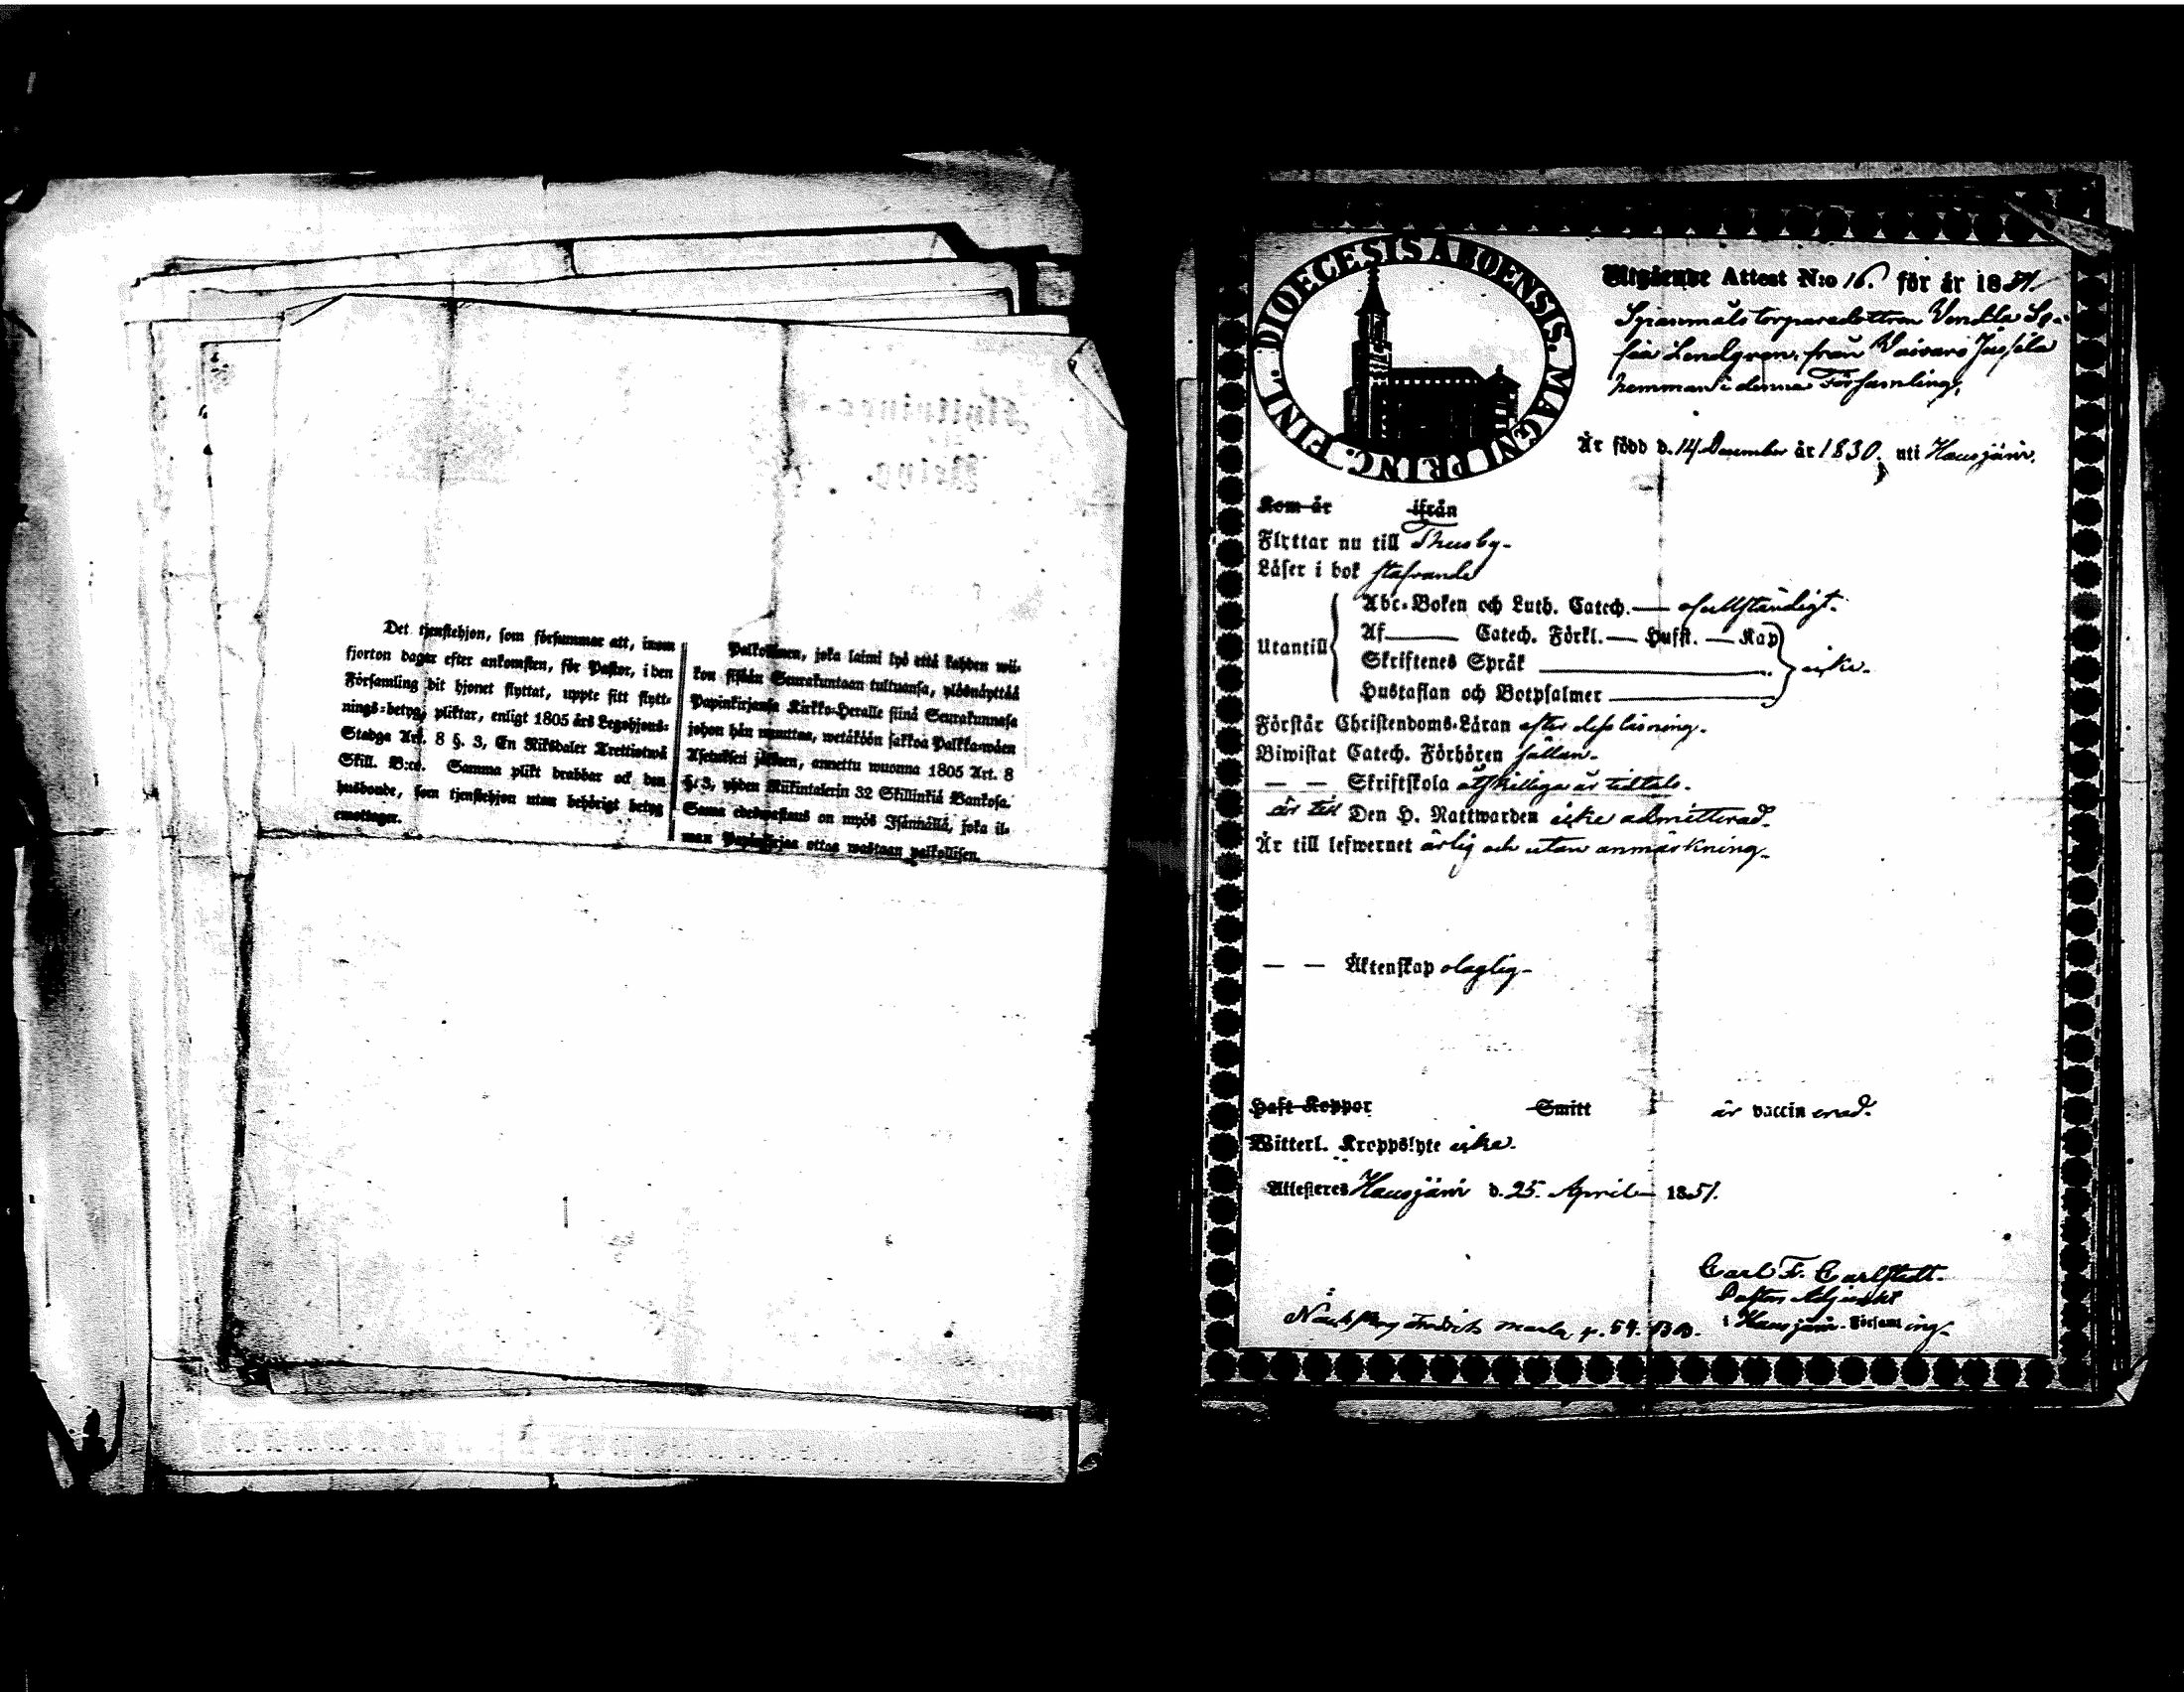 Det tjenstehjon, som försummar att, inom
fjorton dagar efter ankomsten, för Pastor, i den
Församling dit hjonet flyttat, uppte sitt flytt-
nings-betyg, pliktar, enligt 1805 års Legohjons-
Stadga Art. 8 §. 3, En Riksdaler Trettiotwå
Skill. B:co. Samma plikt drabbar ock den
husbonde, som tjenstehjon utan behörigt betyg
emottager.
Palkollinen, joka laimi lyö että kahden wii-
kon sisään Seurakuntaan tultuansa, ylösnäyttää
Papinkirjansa Kirkko-Herralle siinä Seurakunnasa
johon hän muuttaa, wetäköön sakkoa Palkka-wäen
Asetuksen jälkeen, annettu wuonna 1805 Art. 8
§. 3, yhden Riikintalerin 32 Skillinkiä Bankosa.
Sama edeswastaus on myös Isännällä, joka il-
man Papinkirjaa ottaa wastaan palkollisen.
DIOECESIS ABOENSIS. MAGNI PRINC. FINL.
Utgående Attest N:o 16. för år 1851.
torparedottren Vendla So-
fia Lendgren, från Vaivari Jussila
hemman i denna Församling,
Är född d. 14 December år 1830. uti Hausjärvi.
Kom år ifrån
Flyttar nu till Thusby.
Läser i bok stafvande
Abc-Boken och Luth. Catech. — ofullständigt.
Utantill
Af — Catech. Förkl. — Husst. — Kap
Skriftenes Språk — icke.
Hustaflan och Botpsalmer
Förstår Christendoms-Läran efter dess läsning.
Biwistat Catech. Förhören sällan.
— — Skriftskola åtskilliga år tilltals.
är till Den H. Nattwarden icke admitterad.
Är till lefwernet ärlig och utan anmärkning.
— — Äktenskap olaglig.
Haft Koppor Smitt är vaccinerad.
Witterl. Kroppslyte icke.
Attesteres Hausjärvi d. 25. April 1851.
Carl F. Carlstedt.
Pastors Adjunkt
i Hausjärvi Församling.
p. 54.